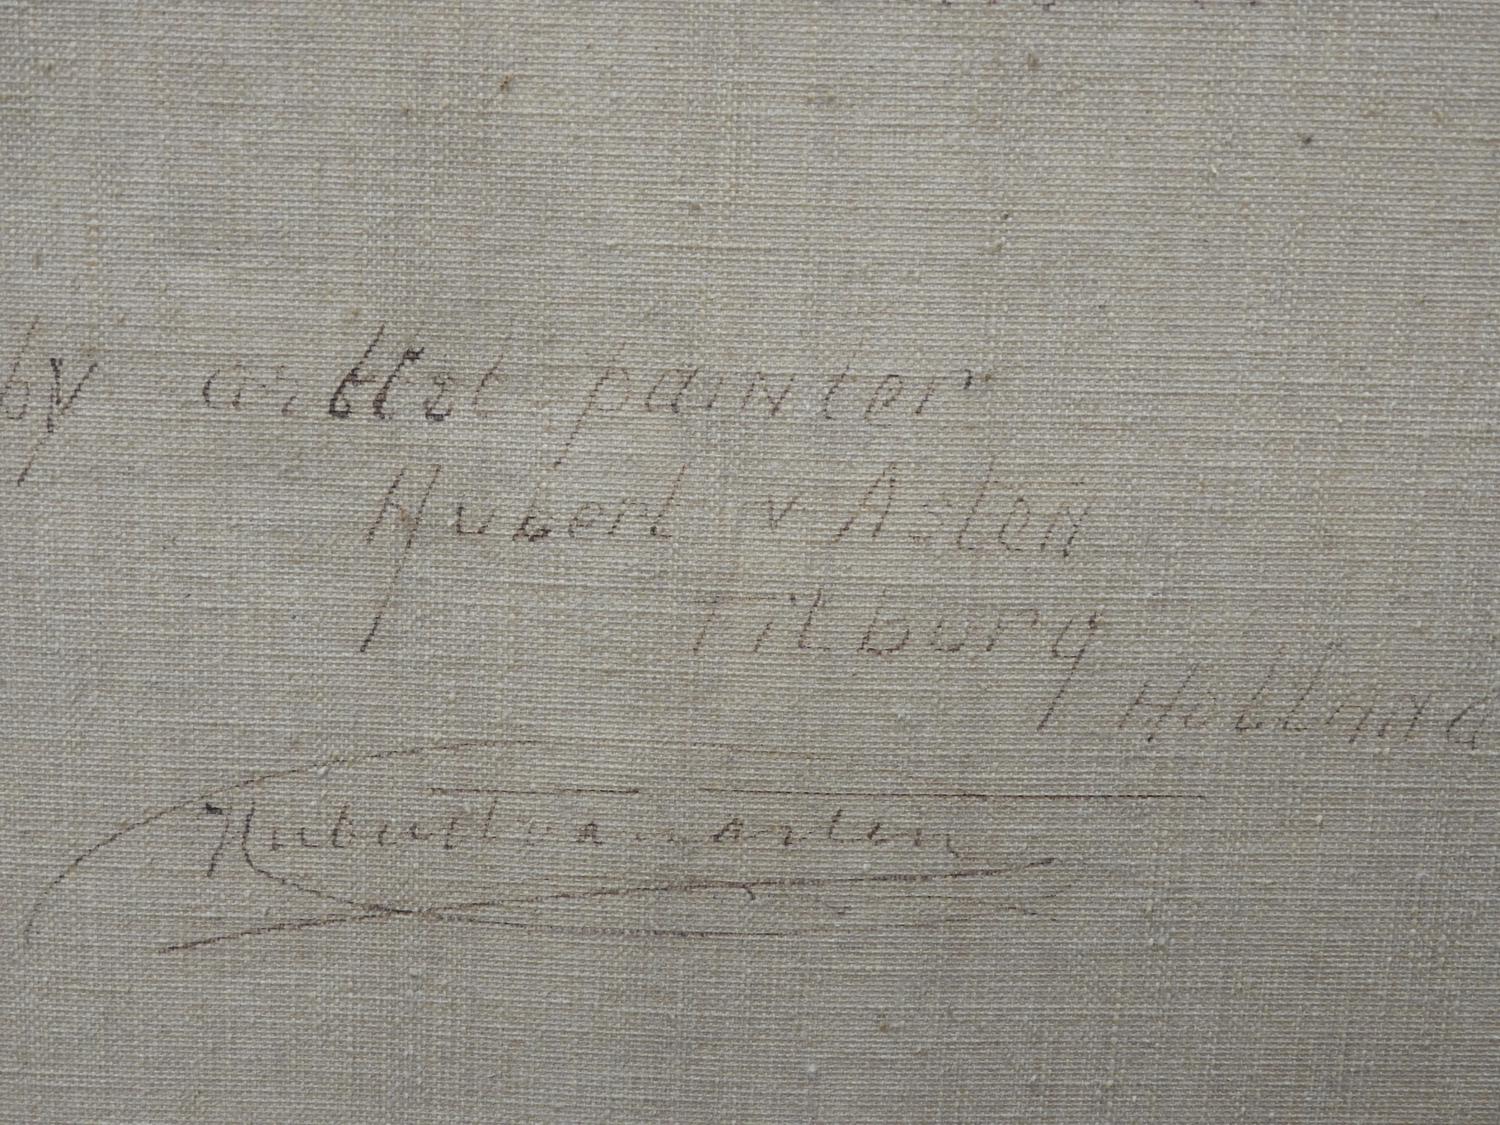 by artist painter
Hubert v Asten
Tilburg
Holland
Hubert van asten